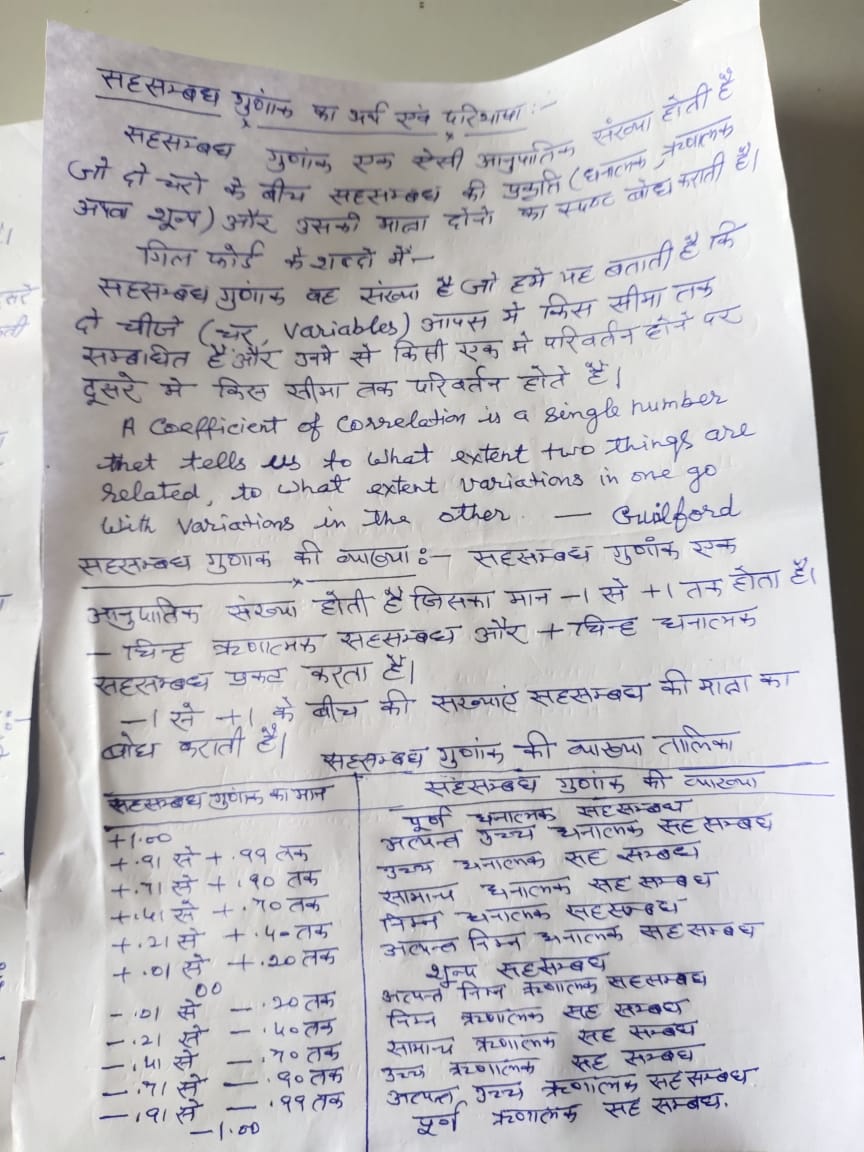 सहसम्बध गुणांक का अर्थ एवं परिभाषा :-
सहसम्बध गुणांक एक ऐसी आनुपातिक संख्या होती है
जो दो चरो के बीच सहसम्बध की प्रकृति (धनात्मक, ऋणात्मक
अथवा शून्य) और उसकी मात्रा दोनो का स्पष्ट बोध कराती है।
गिल फोर्ड के शब्दो में -
सहसम्बध गुणांक वह संख्या है जो हमे यह बताती है कि
दो चीजे (चर, variables) आपस मे किस सीमा तक
सम्बाधित है और उनमे से किसी एक मे परिवर्तन होने पर
दूसरे मे किस सीमा तक परिवर्तन होते है।
A Coefficient of Correlation is a single number
that tells us to what extent two things are
related, to what extent variations in one go
with variations in the other. — Guilford
सहसम्बध गुणांक की व्याख्या :- सहसम्बध गुणांक एक
आनुपातिक संख्या होती है जिसका मान -1 से +1 तक होता है।
- चिन्ह ऋणात्मक सहसम्बध और + चिन्ह धनात्मक
सहसम्बध प्रकट करता है।
-1 से +1 के बीच की संख्याएं सहसम्बध की मात्रा का
बोध कराती है।
सहसम्बध गुणांक की व्याख्या तालिका
सहसम्बध गुणांक का मान सहसम्बध गुणांक की व्याख्या
+1.00 पूर्ण धनात्मक सहसम्बध
+.91 से +.99 तक अत्यन्त उच्च धनात्मक सह सम्बध
+.71 से +.90 तक उच्च धनात्मक सह सम्बध
+.41 से +.70 तक सामान्य धनात्मक सह सम्बध
+.21 से +.40 तक निम्न धनात्मक सहसम्बध
+.01 से +.20 तक अत्यन्त निम्न धनात्मक सह सम्बध
00 शून्य सहसम्बध
-.01 से -.20 तक अत्यन्त निम्न ऋणात्मक सहसम्बध
-.21 से -.40 तक निम्न ऋणात्मक सह सम्बध
-.41 से -.70 तक सामान्य ऋणात्मक सह सम्बध
-.71 से -.90 तक उच्च ऋणात्मक सह सम्बध
-.91 से -.99 तक अत्यन्त उच्च ऋणात्मक सह सम्बध
-1.00 पूर्ण ऋणात्मक सह सम्बध.